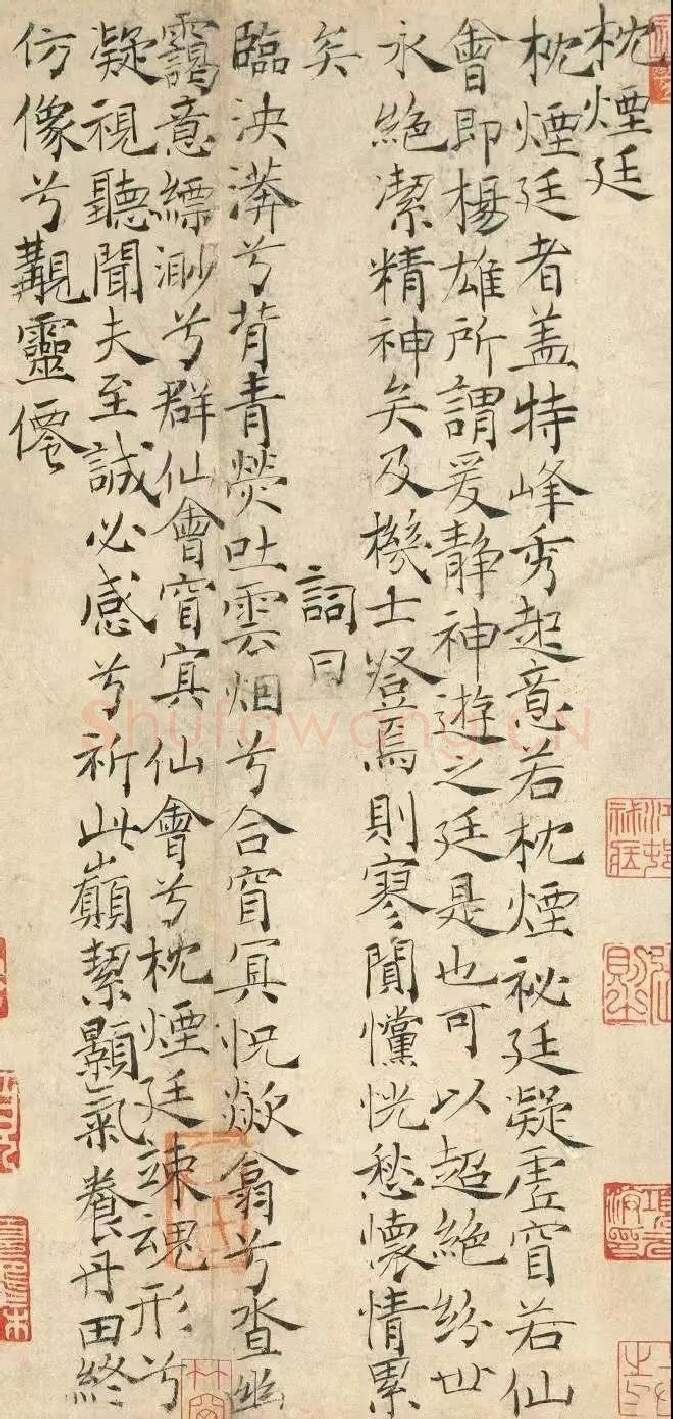 枕煙廷
枕煙廷者盖特峰秀起意若枕煙祕廷凝虚窅若仙
會即楊雄所謂爰静神遊之廷是也可以超絕紛世
永絕潔精神矣及機士登焉則寥闃懭恍愁懷情累
矣
詞曰
臨泱漭兮背青熒吐雲烟兮合窅冥怳欻翕兮沓幽
靄意縹渺兮群仙會窅冥仙會兮枕煙廷竦魂形兮
凝視聽聞夫至誠必感兮祈此巔絜顥氣養丹田終
仿像兮覯靈僊
shufawang.CN